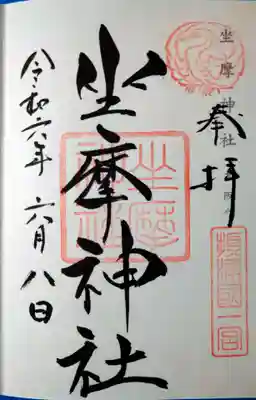 坐摩神社
奉拝
摂津国一宮
坐摩神社
令和六年 六月八日